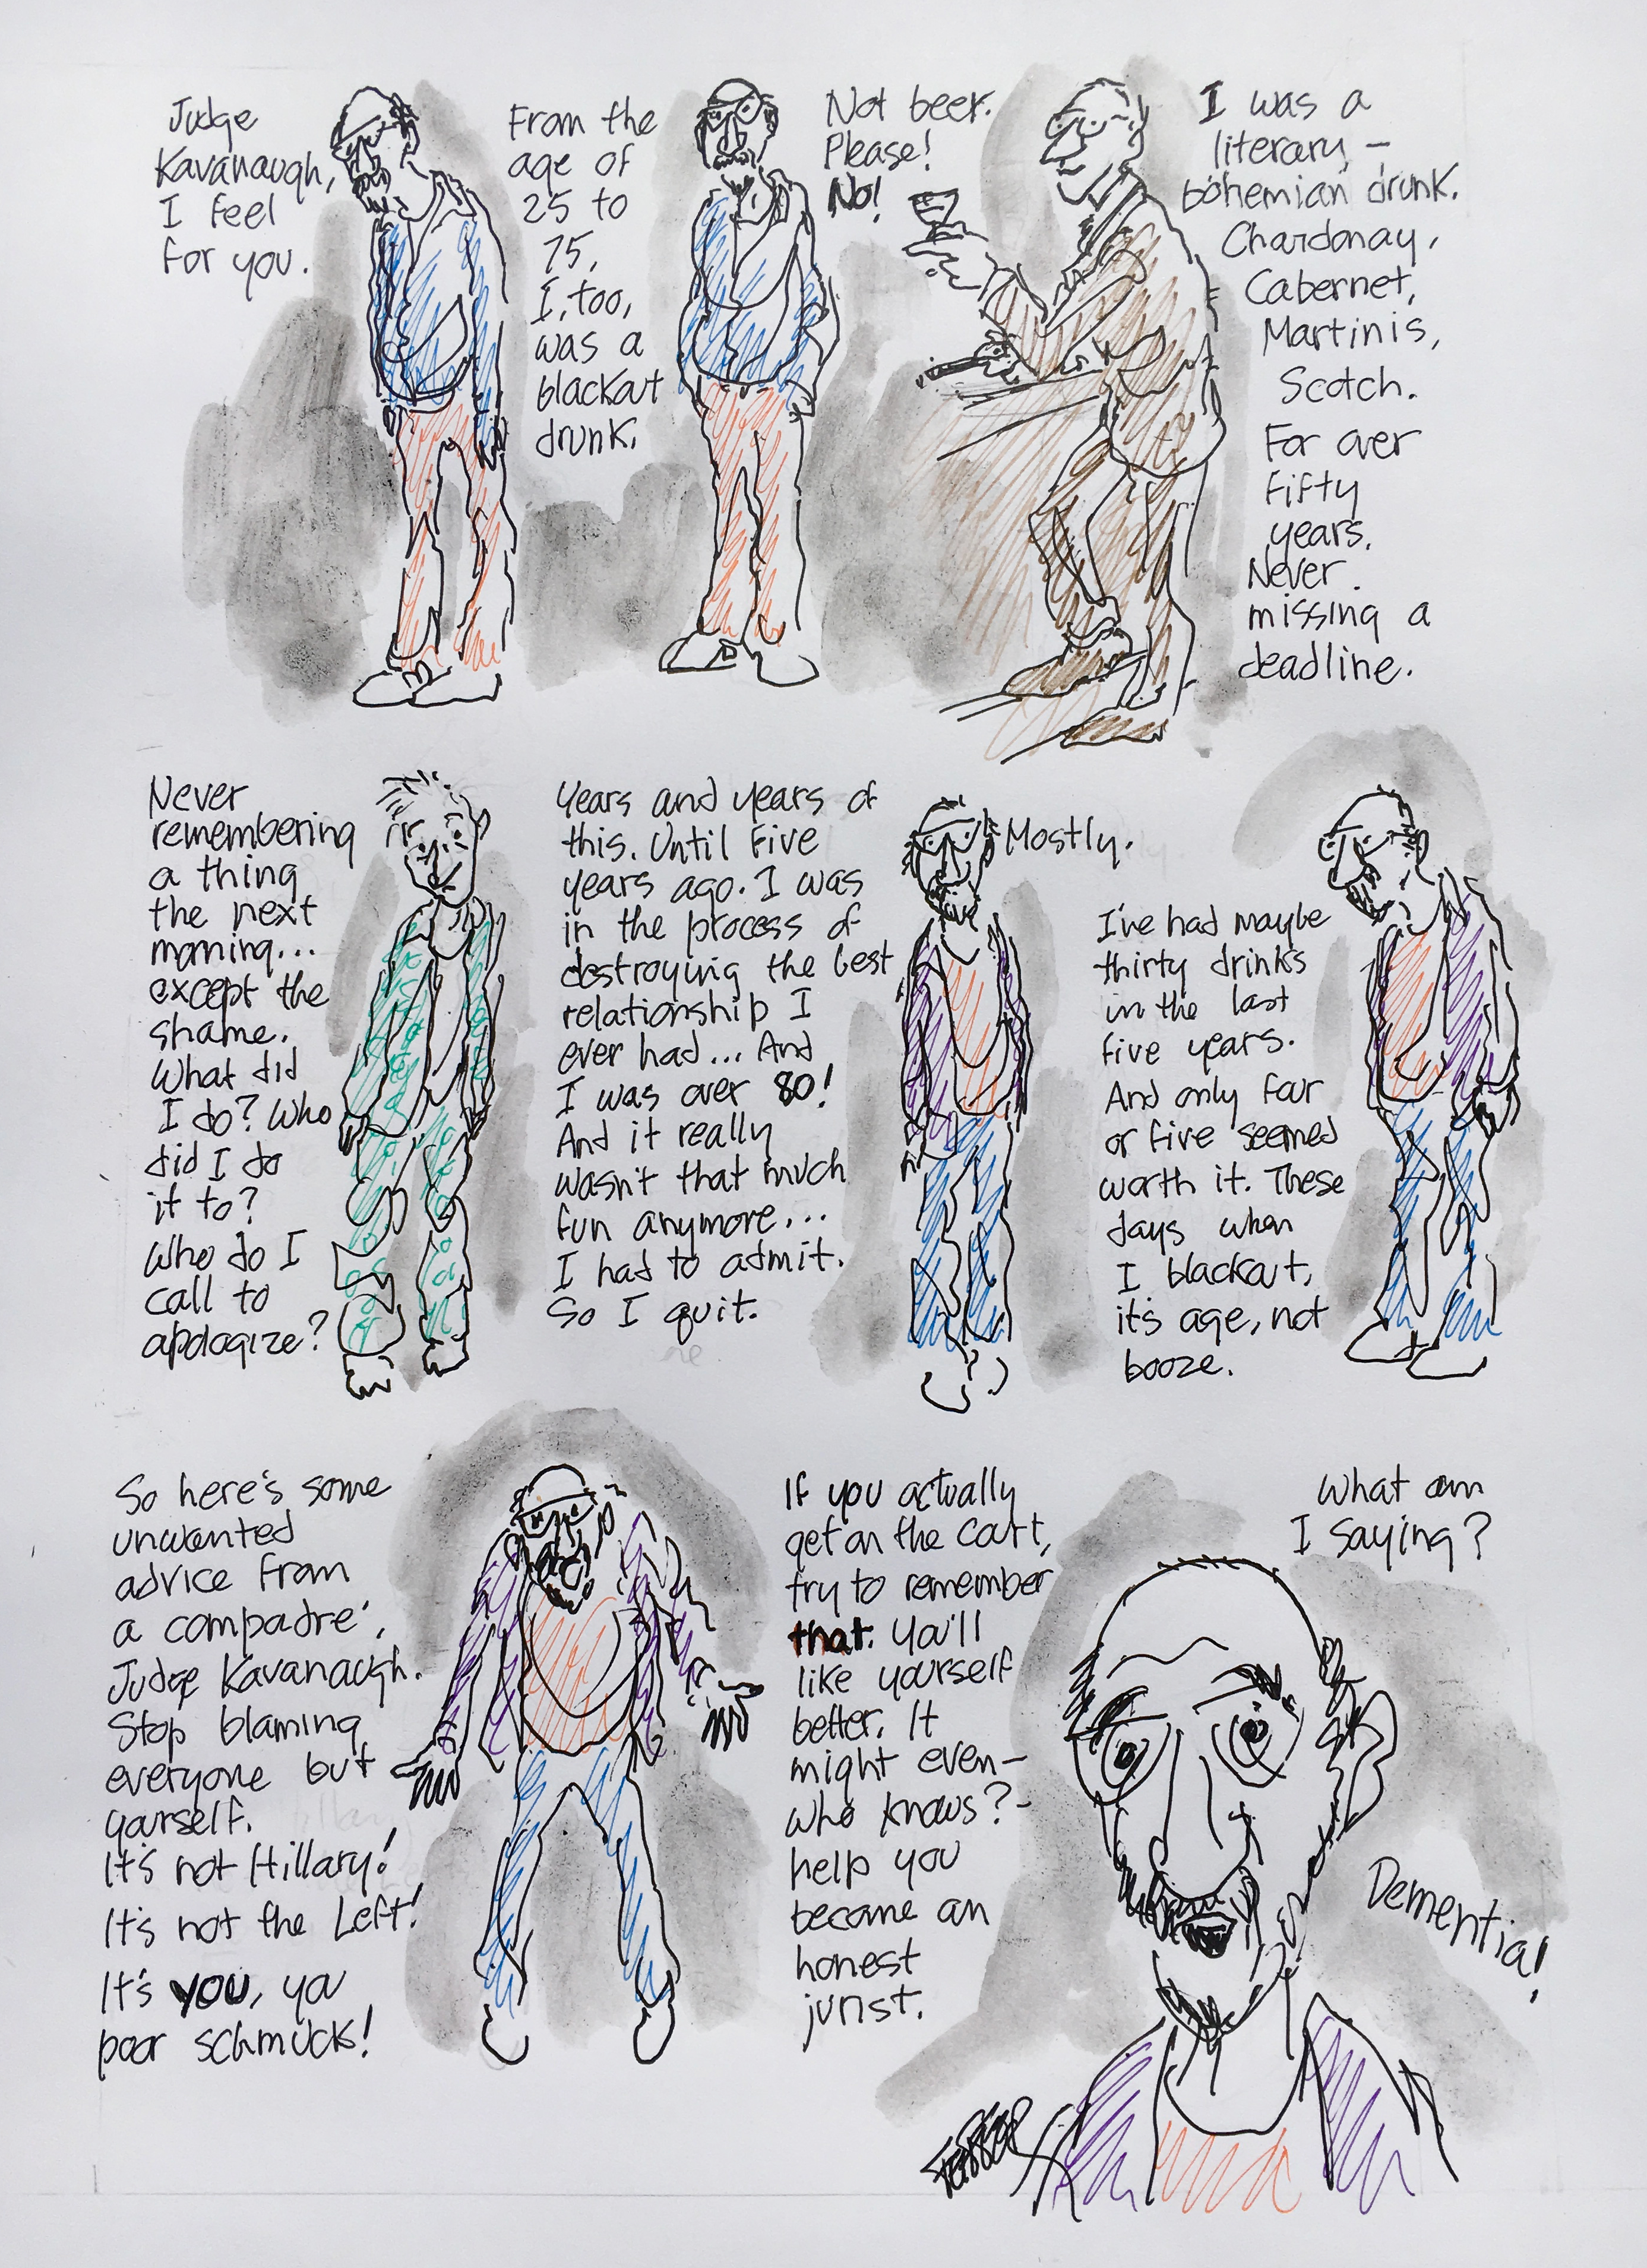 Judge
Kavanaugh,
I feel
for you.
From the
age of
25 to
75,
I, too,
was a
blackout
drunk.
Not beer.
Please!
No!
I was a
literary –
bohemian drunk.
Chardonay,
Cabernet,
Martinis,
Scotch.
For over
fifty
years.
Never
missing a
deadline.
Never
remembering
a thing
the next
morning...
except the
shame.
What did
I do? Who
did I do
it to?
Who do I
call to
apologize?
Years and years of
this. Until five
years ago. I was
in the process of
destroying the best
relationship I
ever had... And
I was over 80!
And it really
wasn't that much
fun anymore...
I had to admit.
So I quit.
Mostly.
I've had maybe
thirty drinks
in the last
five years.
And only four
or five seemed
worth it. These
days when
I blackout,
it's age, not
booze.
So here's some
unwanted
advice from
a compadre',
Judge Kavanaugh.
Stop blaming
everyone but
yourself.
It's not Hillary!
It's not the Left!
It's YOU, you
poor schmuck!
If you actually
get on the Court,
try to remember
that. You'll
like yourself
better. It
might even—
who knows?-
help you
become an
honest
jurist.
What am
I saying?
Dementia!